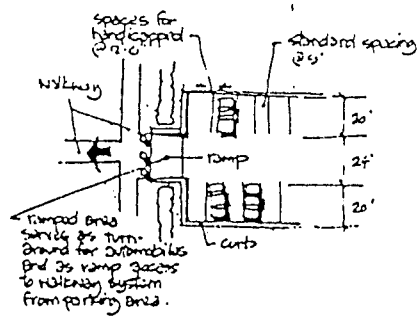 spaces for
handicapped
@ 12'-0"
standard spacing
@ 9'
walkway
20'
ramp
24'
20'
curb
ramped area
serves as turn-
around for automobiles
and as ramp access
to walkway system
from parking area.